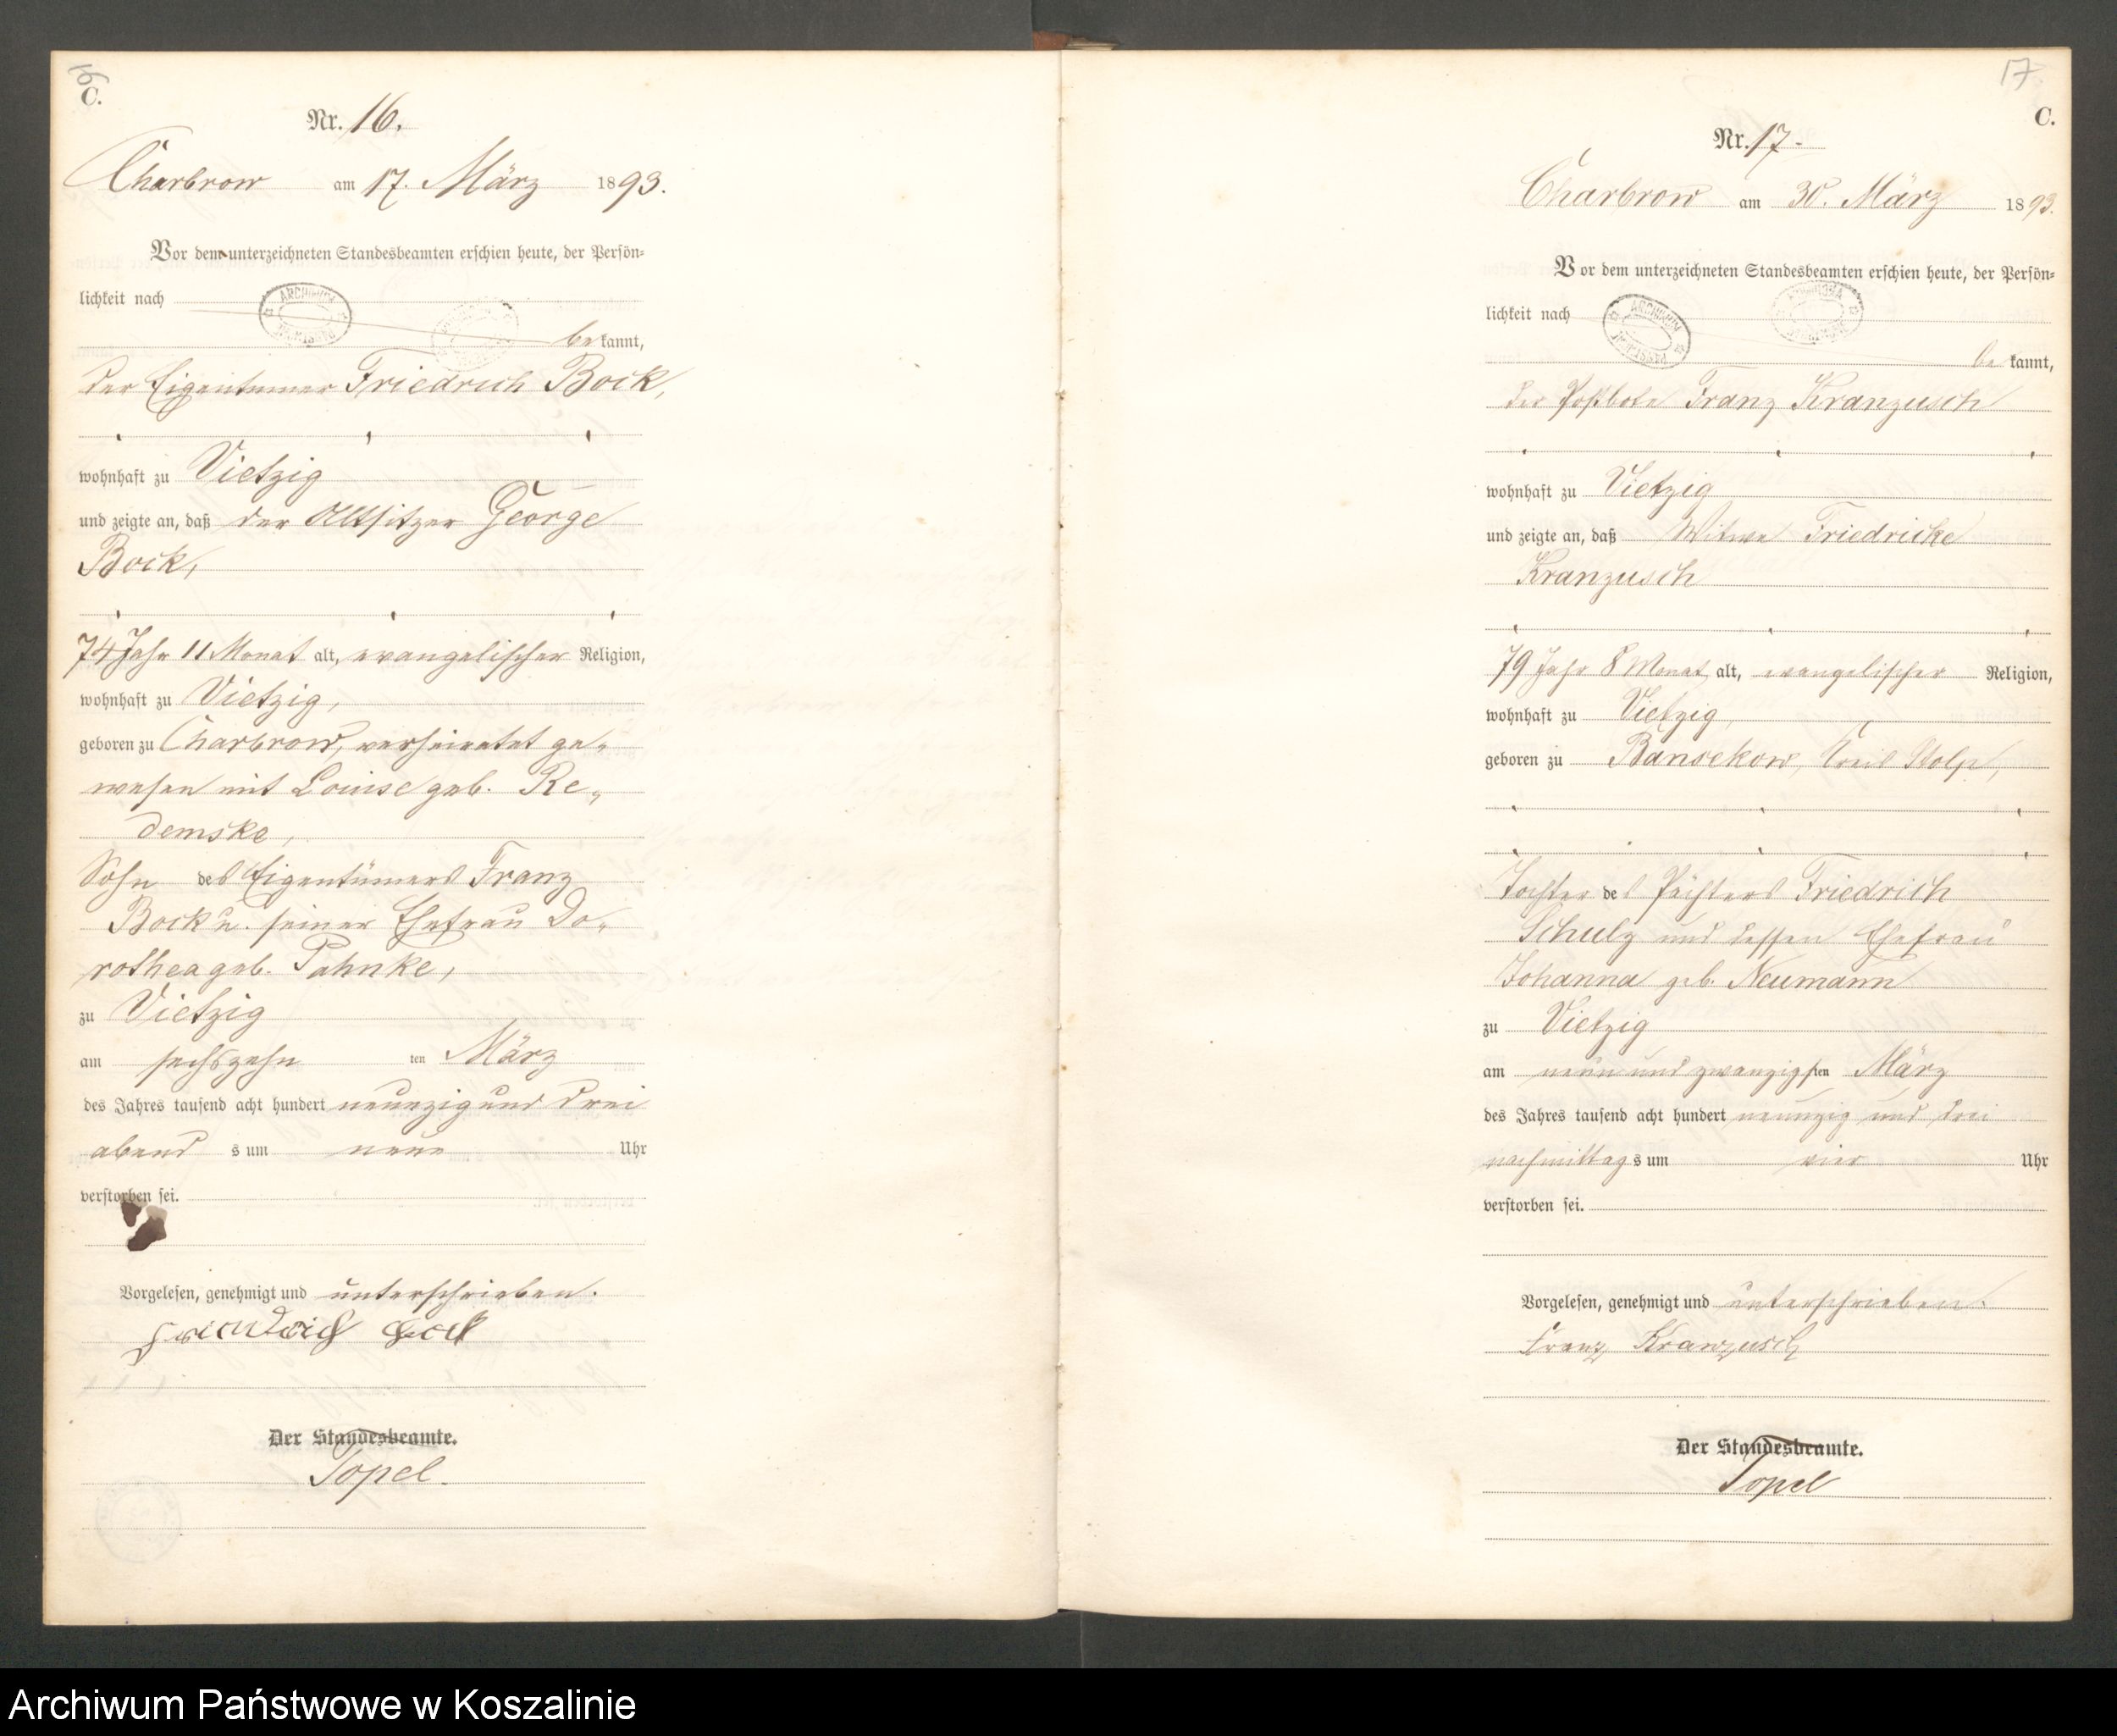 16
C.
Nr. 16.
Charbrow am 17. März 1893.
Vor dem unterzeichneten Standesbeamten erschien heute, der Persön-
lichkeit nach
bekannt,
der Eigentümer Friedrich Bock,
wohnhaft zu Vietzig
und zeigte an, daß der Altsitzer George
Bock,
74 Jahr 11 Monat alt, evangelischer Religion,
wohnhaft zu Vietzig,
geboren zu Charbrow, verheiratet ge-
wesen mit Louise geb. Re-
demske,
Sohn des Eigentümers Franz
Bock u. seiner Ehefrau Do-
rothea geb. Pahnke,
zu Vietzig
am sechszehn ten März
des Jahres tausend acht hundert neunzig und drei
abend s um neun Uhr
verstorben sei.
Vorgelesen, genehmigt und unterschrieben.
Friedrich Bock
Der Standesbeamte.
Topel.
17
C.
Nr. 17.
Charbrow am 30. März 1893.
Vor dem unterzeichneten Standesbeamten erschien heute, der Persön-
lichkeit nach
be kannt,
der Postbote Franz Kranzusch
wohnhaft zu Vietzig
und zeigte an, daß Witwe Friedricke
Kranzusch
79 Jahr 8 Monat alt, evangelischer Religion,
wohnhaft zu Vietzig,
geboren zu Bansekow, Kreis Stolp,
Tochter des Pächters Friedrich
Schulz und dessen Ehefrau
Johanna geb. Neumann
zu Vietzig
am neun und zwanzigsten März
des Jahres tausend acht hundert neunzig und drei
nachmittag s um vier Uhr
verstorben sei.
Vorgelesen, genehmigt und unterschrieben.
Franz Kranzusch
Der Standesbeamte.
Topel
Archiwum Państwowe w Koszalinie